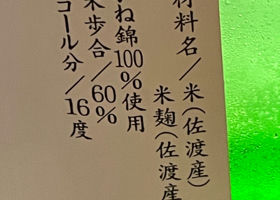 材料名/米(佐渡産)
米麹(佐渡産
ね錦100%使用
米歩合/60%
コール分/16度